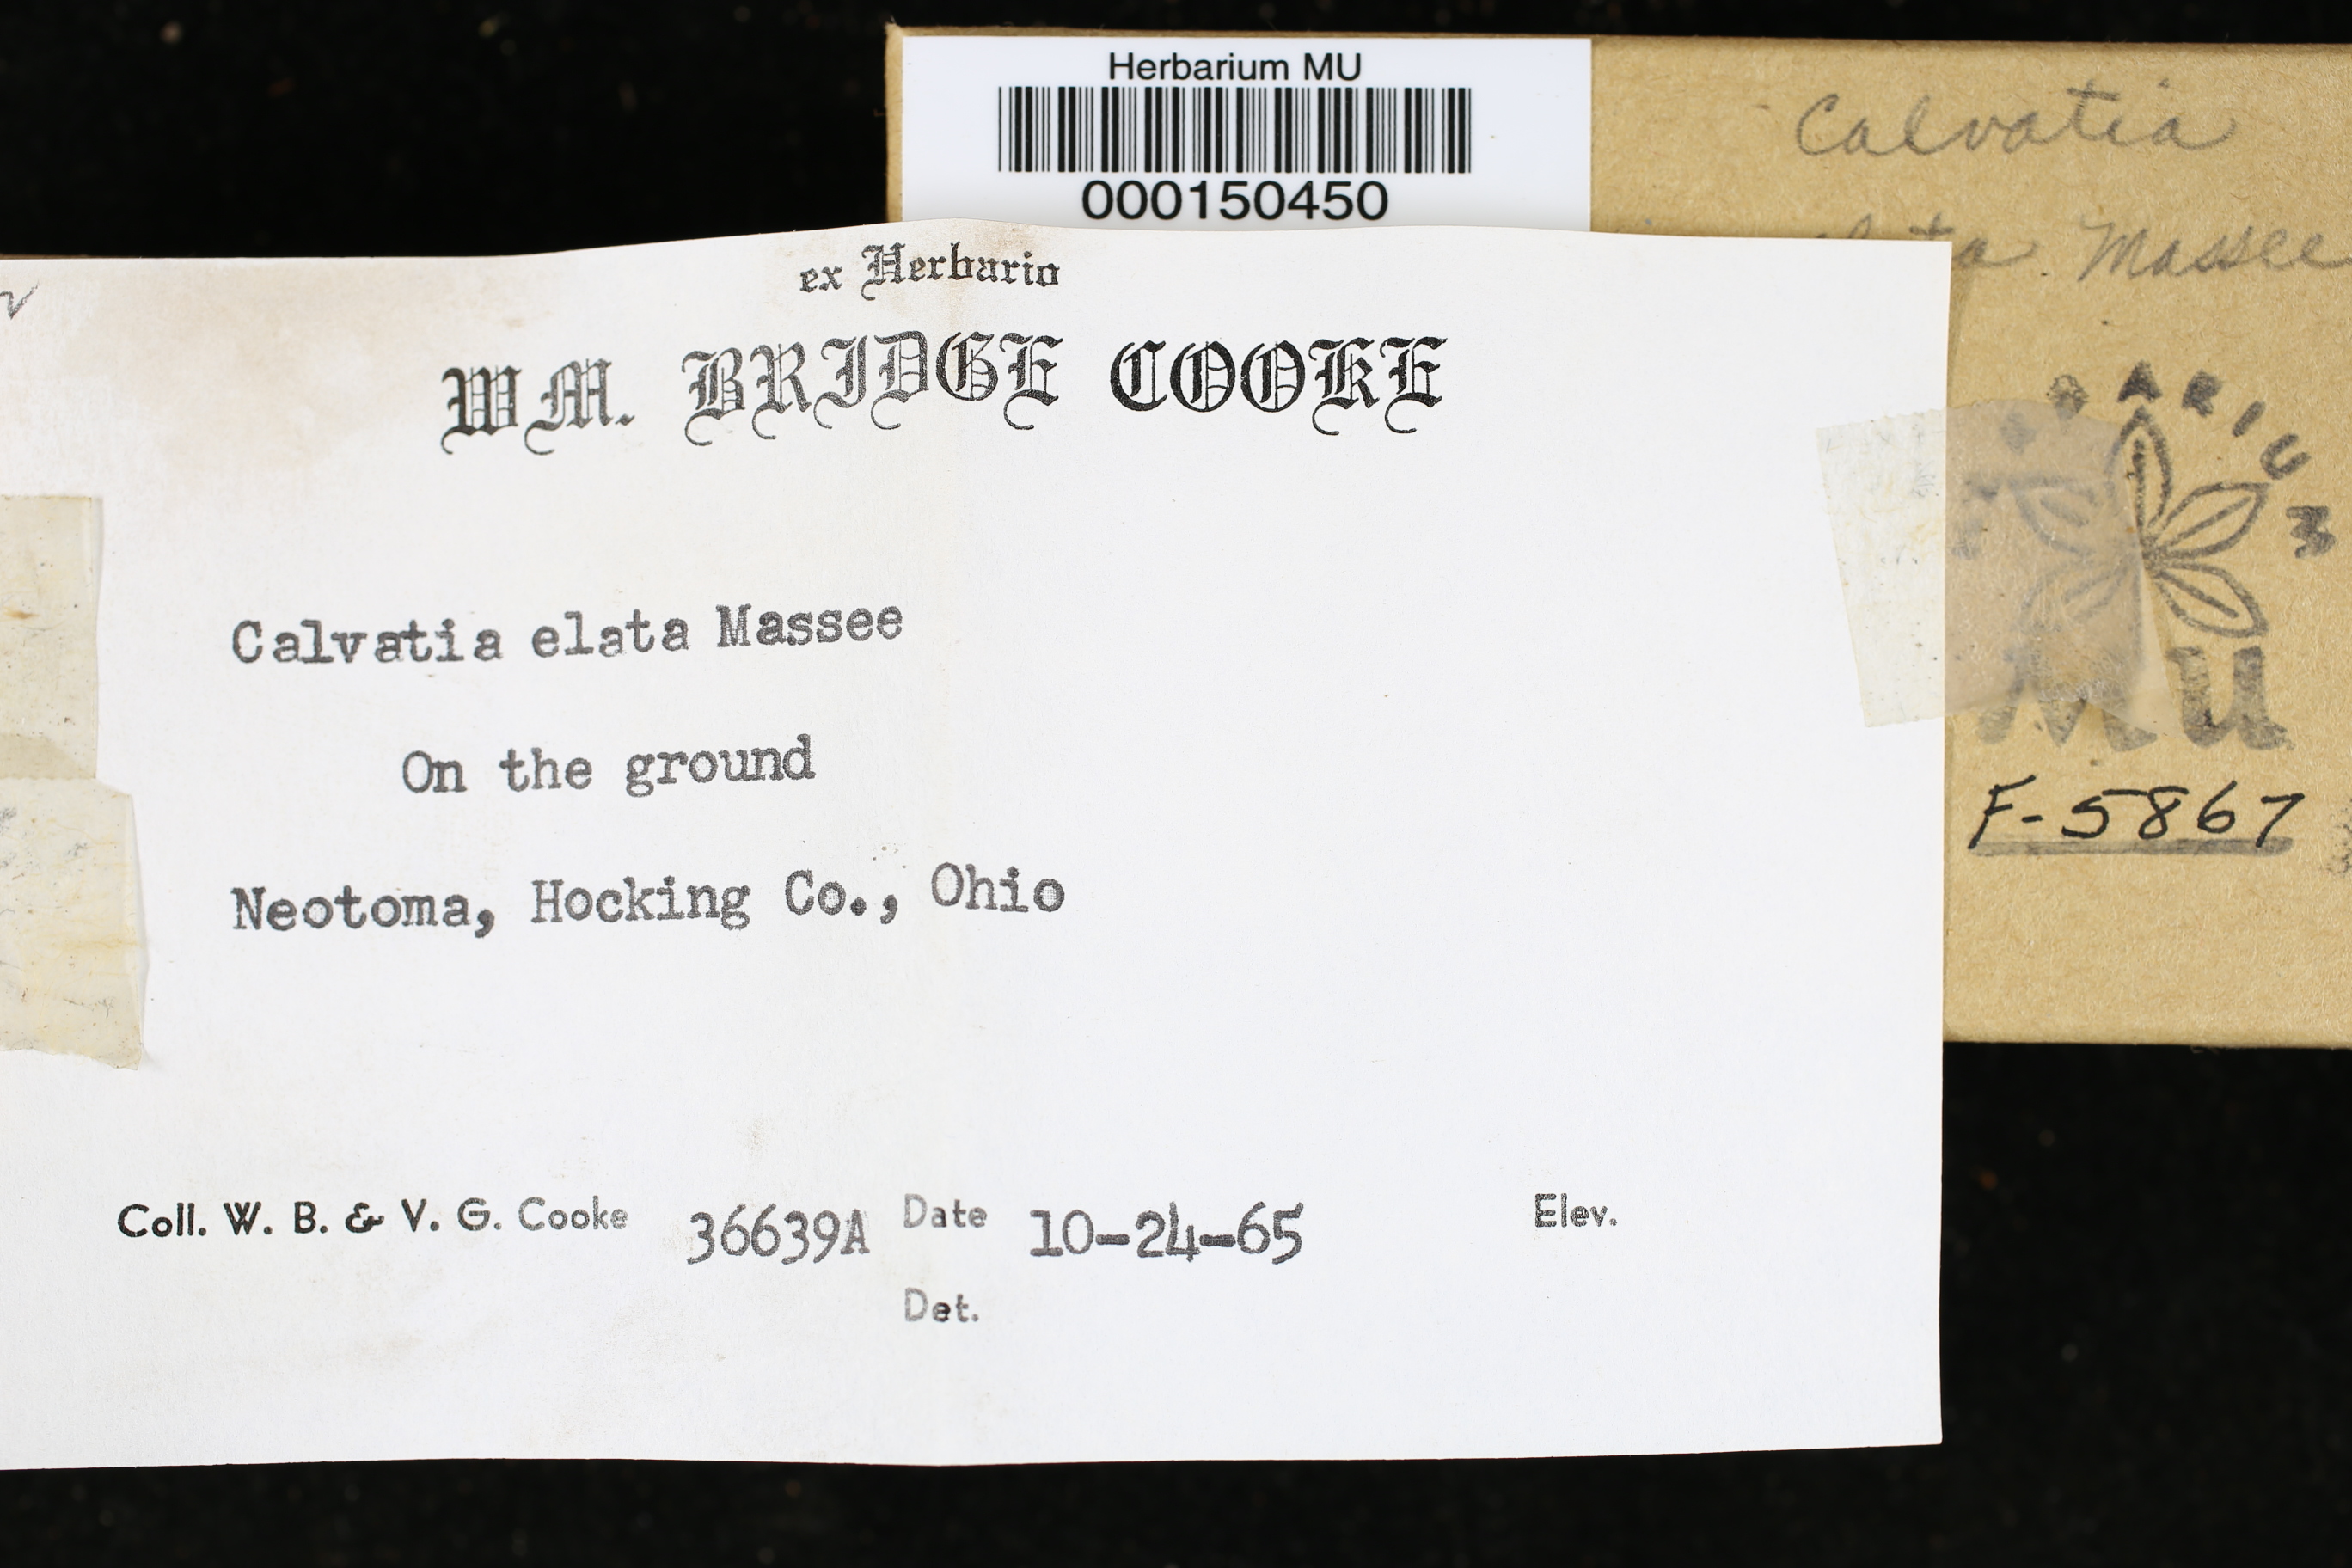 Herbarium MU
000150450
Calvatia
Massee
HERBARIUM
MU
F-5867
ex Herbario
WM. BRIDGE COOKE
Calvatia elata Massee
On the ground
Neotoma, Hocking Co., Ohio
Coll. W. B. & V. G. Cooke 36639A Date 10-24-65 Elev.
Det.